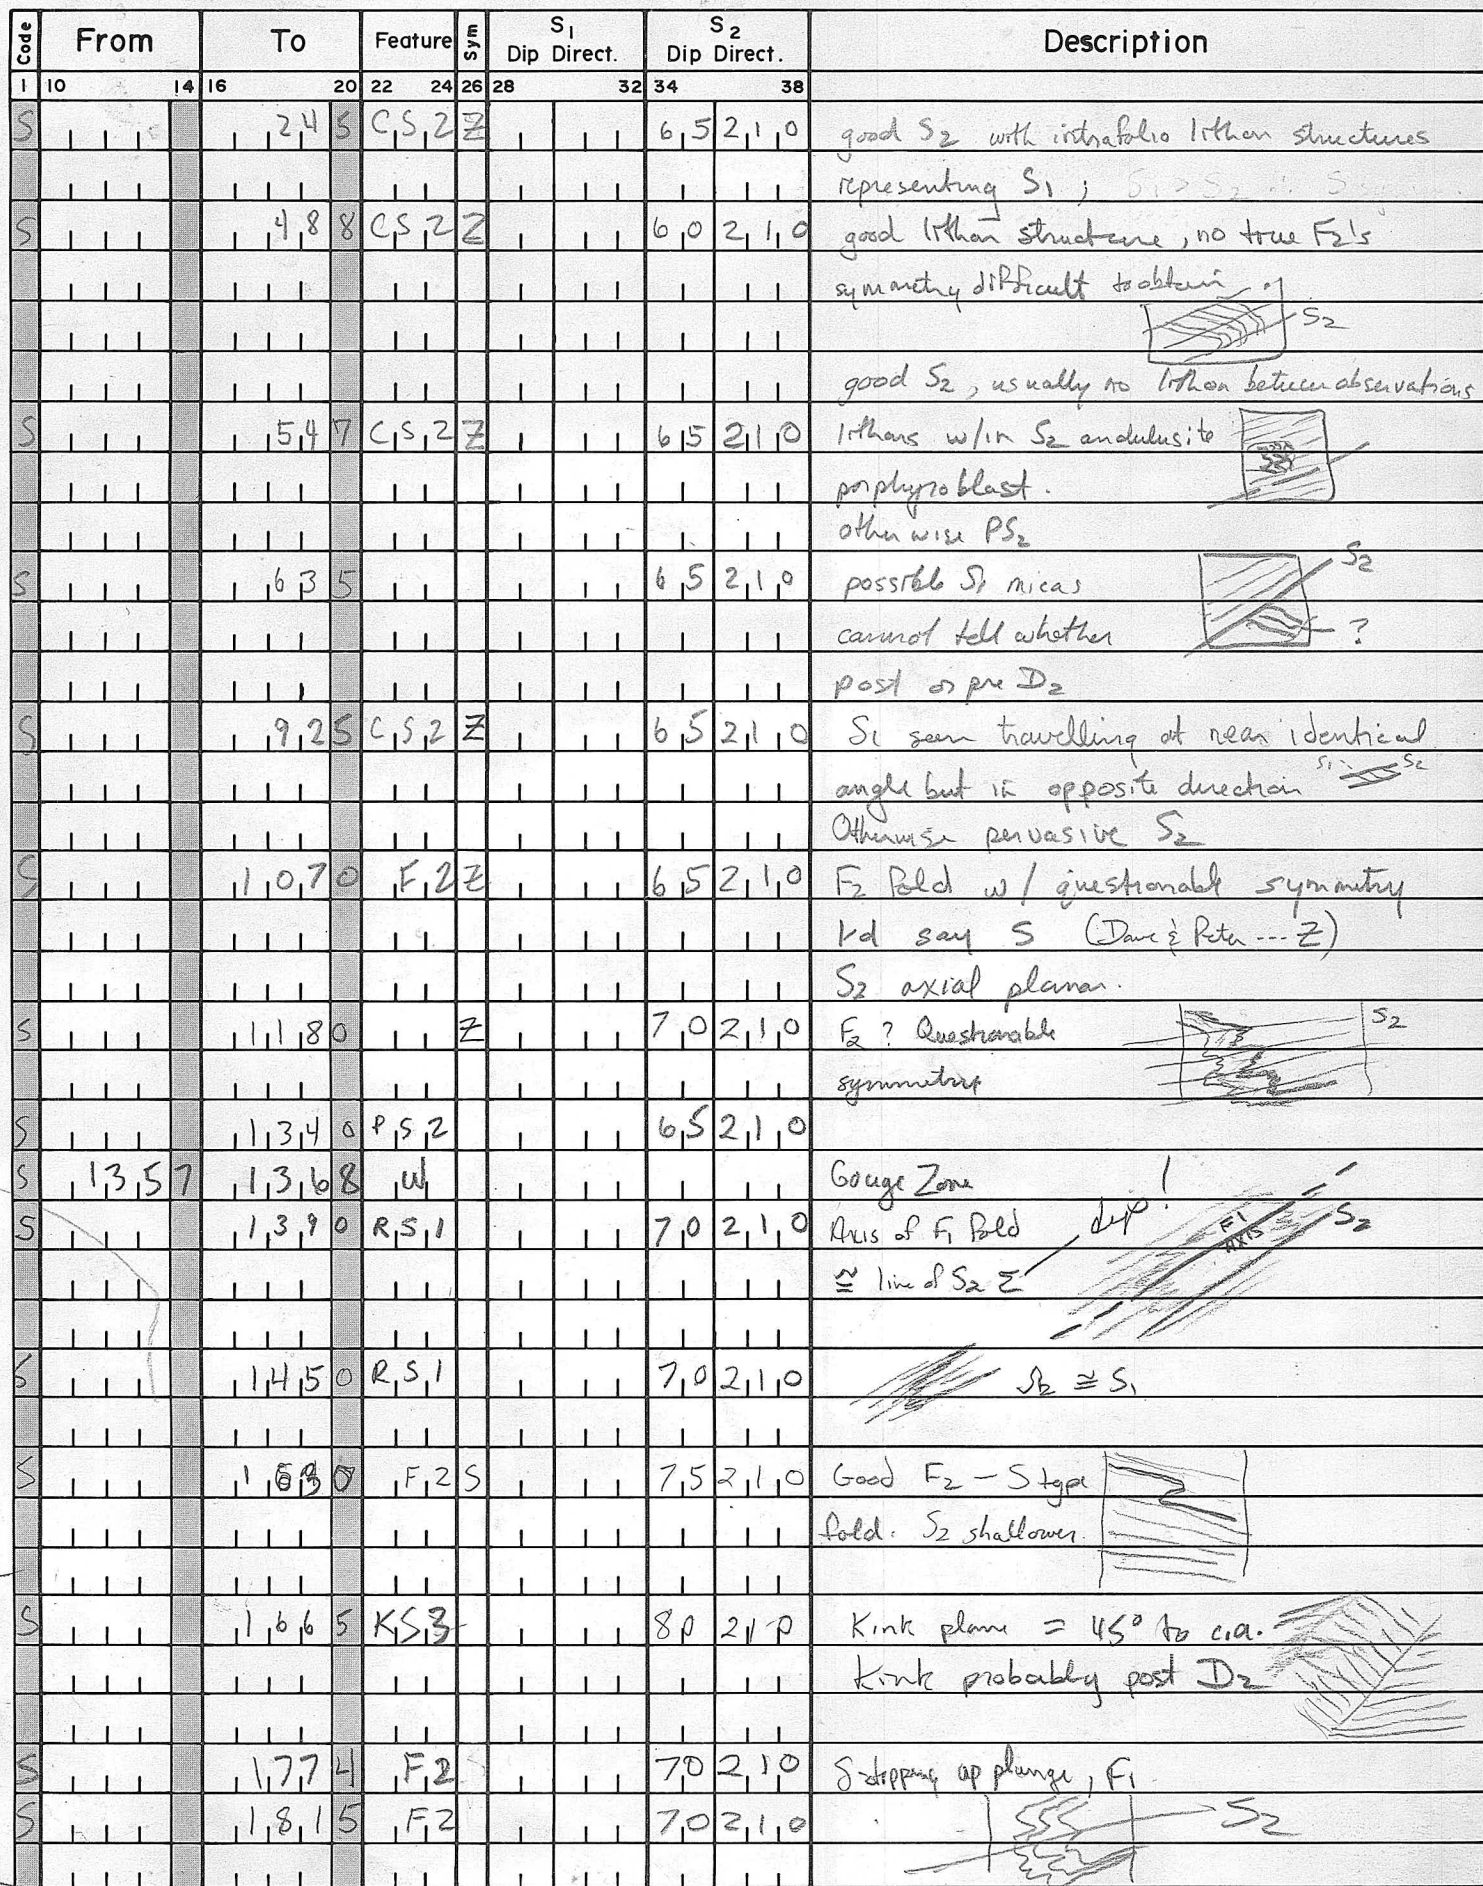 Code From To Feature Sym S1 Dip Direct. S2 Dip Direct. Description
1 10 14 16 20 22 24 26 28 32 34 38
S 245 CS2 Z 65 210 good S2 with intrafolio lithon structures
representing S1 ; S1 > S2 ∴ S
S 488 CS2 Z 60 210 good lithon structure, no true F2's
symmetry difficult to obtain
S2
good S2, usually no lithon between observations
S 547 CS2 Z 65 210 lithons w/in S2 andulusite
porphyroblast.
otherwise PS2
S 635 65 210 possible S1 micas S2
cannot tell whether ?
post or pre D2
S 925 CS2 Z 65 210 S1 seen travelling at near identical
angle but in opposite direction S1 S2
Otherwise pervasive S2
S 1070 F2 Z 65 210 F2 fold w/ questionable symmetry
I'd say S (Dave & Peter --- Z)
S2 axial planar.
S 1180 Z 70 210 F2 ? Questionable S2
symmetry
S 1340 PS2 65 210
S 1357 1368 W Gouge Zone
S 1390 RS1 70 210 Axis of F1 fold dip! F1 AXIS S2
≅ line of S2 Σ
S 1450 RS1 70 210 S2 ≅ S1
S 1630 F2 S 75 210 Good F2 - S type
fold. S2 shallower.
S 1665 KS3 80 210 Kink plane = 45° to c.a.
Kink probably post D2
S 1774 F2 70 210 up plunge, F1
S 1815 F2 70 210 S2